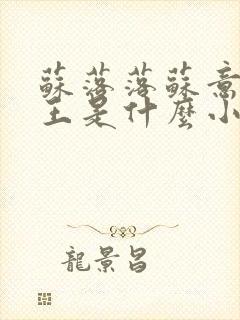 蘇落落蘇意
王是什麼小
龍景昌